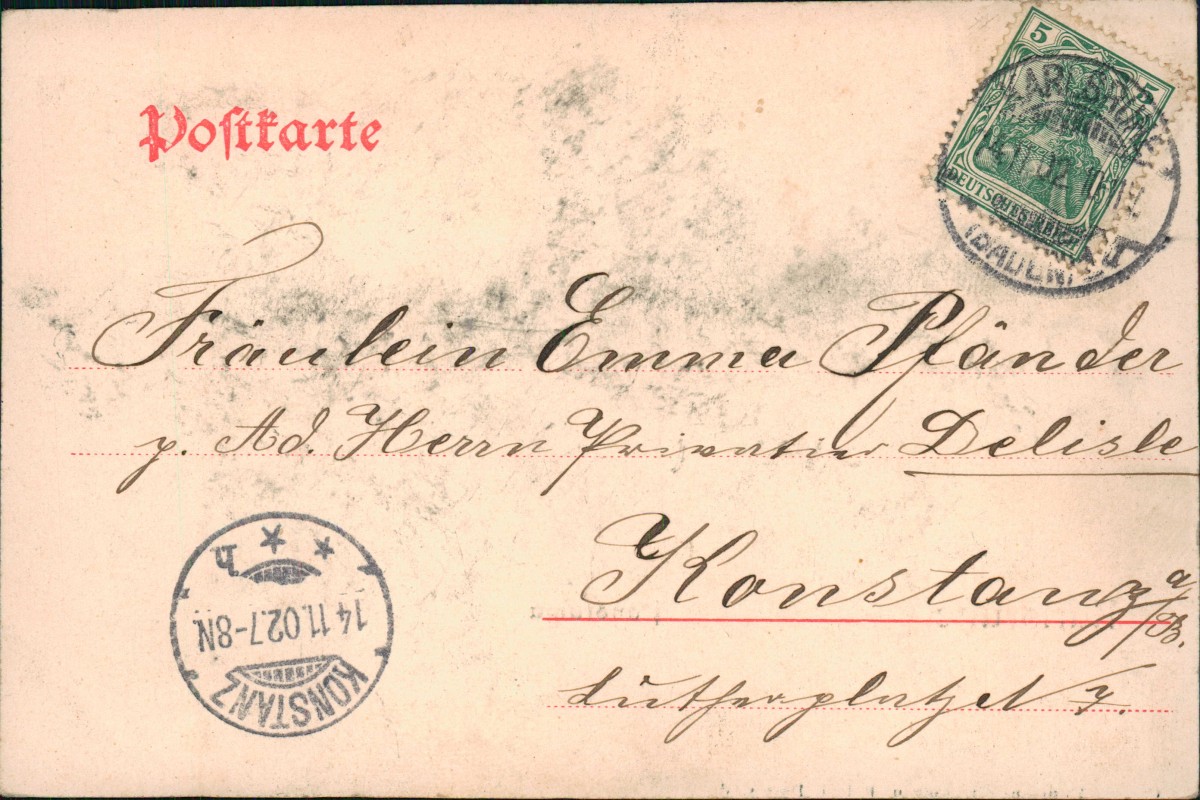 Postkarte
5 5
DEUTSCHES REICH
KARLSRUHE
(BADEN)
Fräulein Emma Pfänder
p. Ad. Herrn Privatier Delisle
Konstanz a/B.
Lutherplatz 7.
14.11.02.7-8N
KONSTANZ